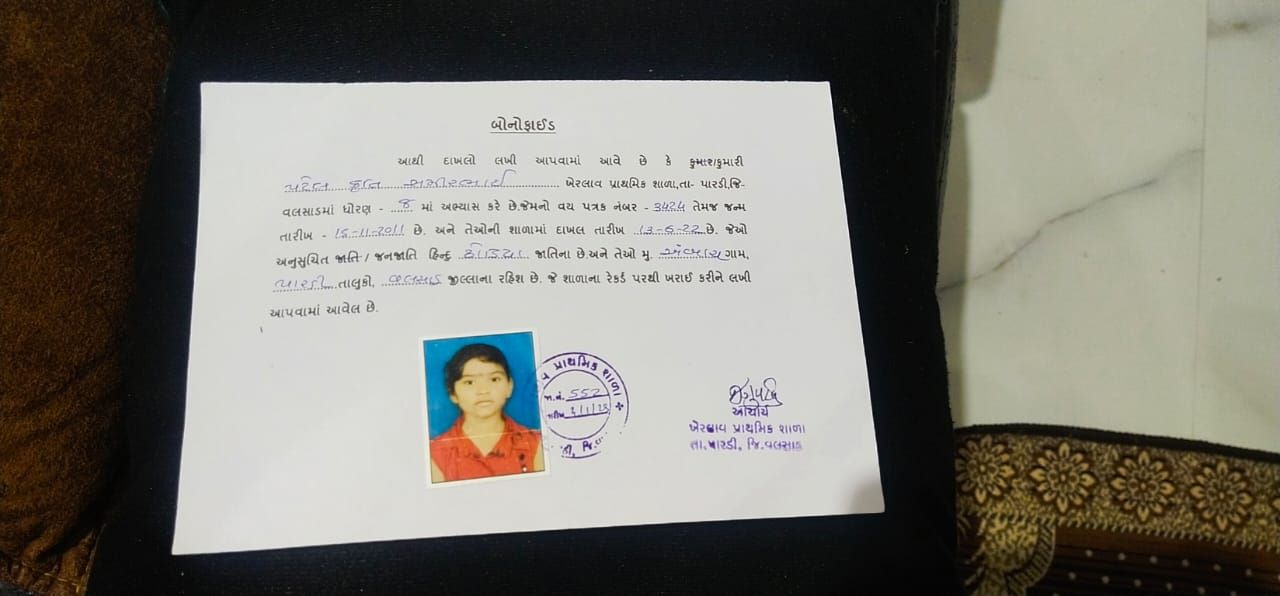 બોનોફાઈડ
આથી દાખલો લખી આપવામાં આવે છે કે કુમાર/કુમારી
પટેલ કૃતિ સમીરભાઈ ખેરલાવ પ્રાથમિક શાળા,તા- પારડી,જિ-
વલસાડમાં ધોરણ - ૪ માં અભ્યાસ કરે છે.જેમનો વય પત્રક નંબર - 3424 તેમજ જન્મ
તારીખ - 15-11-2011 છે. અને તેઓની શાળામાં દાખલ તારીખ 13-6-22 છે. જેઓ
અનુસુચિત જાતિ / જનજાતિ હિન્દુ ધોડિયા જાતિના છે.અને તેઓ મુ. ગામ,
પારડી તાલુકો, વલસાડ જીલ્લાના રહિશ છે. જે શાળાના રેકર્ડ પરથી ખરાઈ કરીને લખી
આપવામાં આવેલ છે.
પ્રાથમિક શાળા
જા.નં. 552
તારીખ
જિ.
આચાર્ય
ખેરલાવ પ્રાથમિક શાળા
તા.પારડી, જિ.વલસાડ